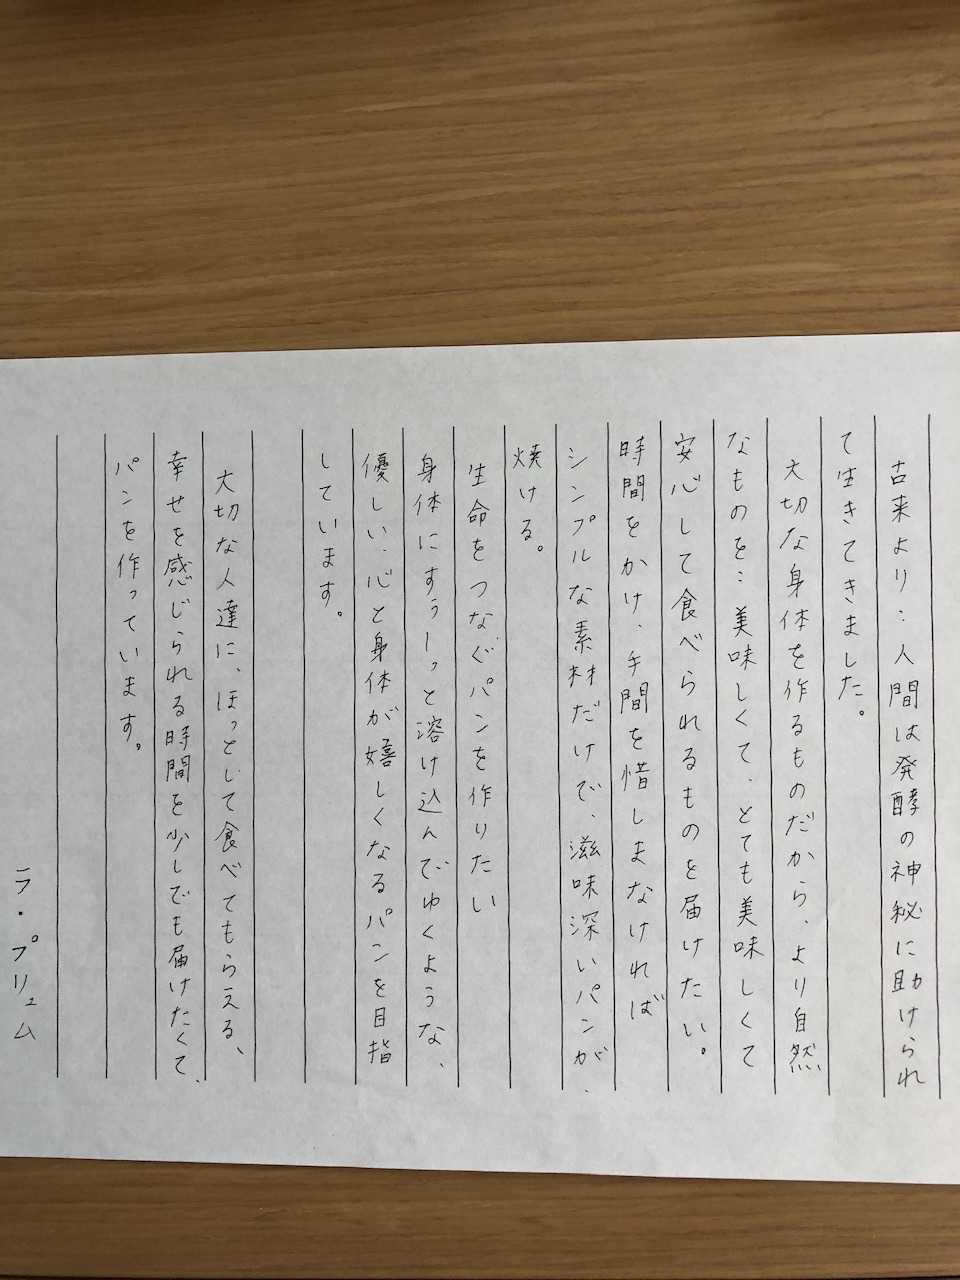 古来より…人間は発酵の神秘に助けられ
て生きてきました。
大切な身体を作るものだから、より自然
なものを…美味しくて、とても美味しくて
安心して食べられるものを届けたい。
時間をかけ、手間を惜しまなければ
シンプルな素材だけで、滋味深いパンが、
焼ける。
生命をつなぐパンを作りたい
身体にすぅーっと溶け込んでゆくような、
優しい、心と身体が嬉しくなるパンを目指
しています。
大切な人達に、ほっとして食べてもらえる、
幸せを感じられる時間を少しでも届けたくて、
パンを作っています。
ラ・プリュム